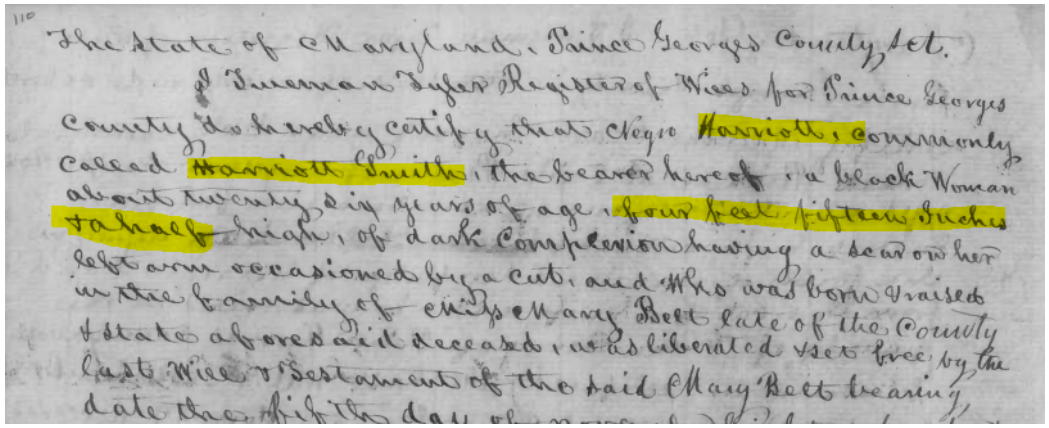 110
The State of Maryland, Prince Georges County Sct.
I Trueman Tyler Register of Wills for Prince Georges
County do hereby certify that Negro Harriott, commonly
called Harriott Smith, the bearer hereof, a black Woman
about twenty six years of age, four feet fifteen Inches
& a half high, of dark Complexion having a scar on her
left arm occasioned by a cut, and Who was born & raised
in the family of Miss Mary Belt late of the County
& state aforesaid deceased, was liberated & set free by the
last Will & Testament of the said Mary Belt bearing
date the fifth day of